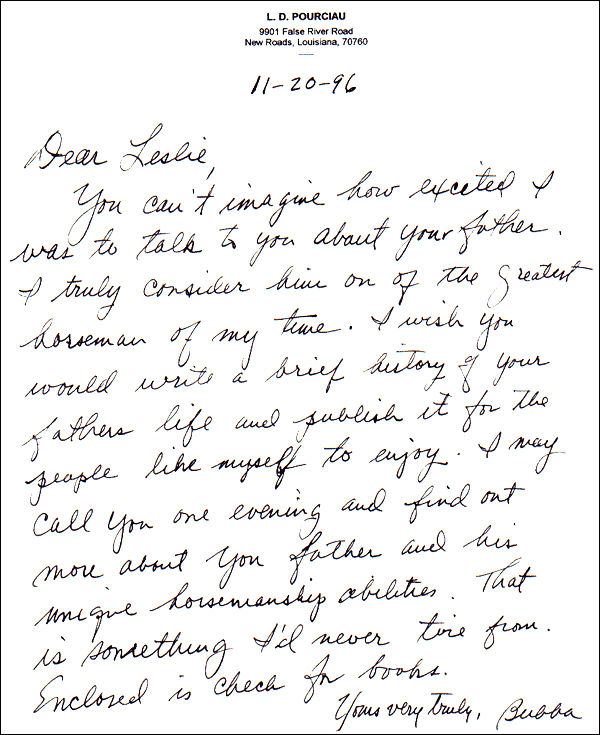 L. D. POURCIAU
9901 False River Road
New Roads, Louisiana, 70760
11-20-96
Dear Leslie,
You can't imagine how excited I
was to talk to you about your father.
I truly consider him on of the greatest
horseman of my time. I wish you
would write a brief history of your
fathers life and publish it for the
people like myself to enjoy. I may
call you one evening and find out
more about you father and his
unique horsemanship abilities. That
is something I'd never tire from.
Enclosed is check for books.
Yours very truly, Bubba